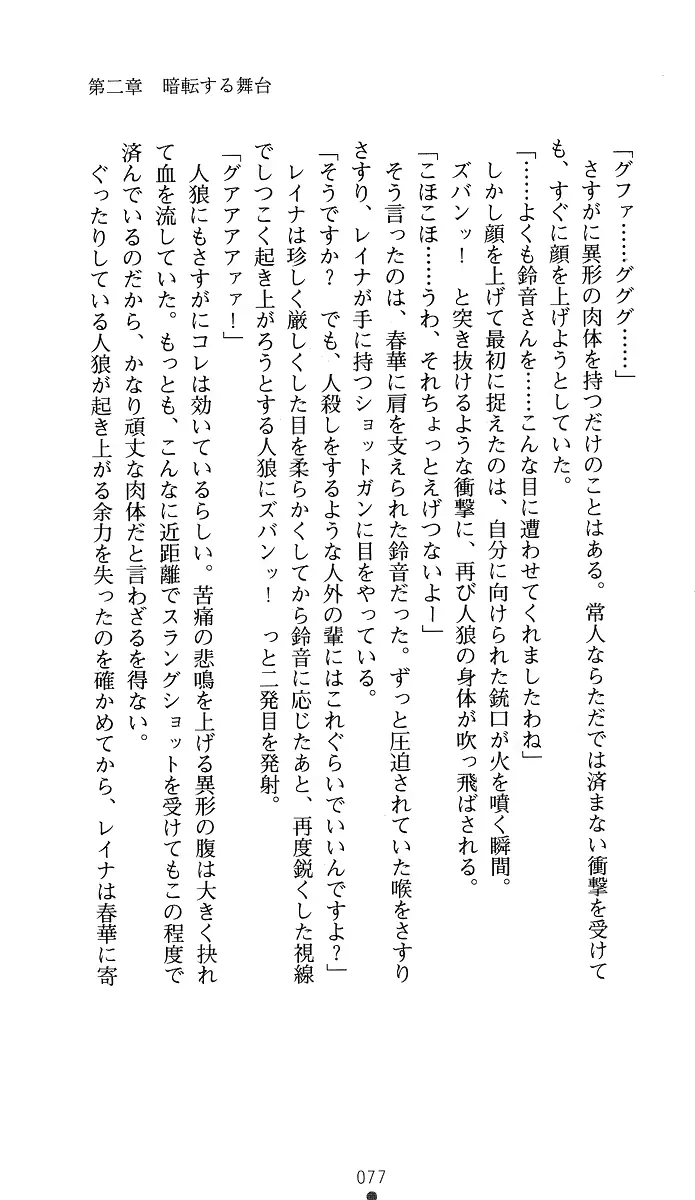 第二章　暗転する舞台
「グファ……グググ……」
　さすがに異形の肉体を持つだけのことはある。常人ならただでは済まない衝撃を受けて
も、すぐに顔を上げようとしていた。
「……よくも鈴音さんを……こんな目に遭わせてくれましたわね」
　しかし顔を上げて最初に捉えたのは、自分に向けられた銃口が火を噴く瞬間。
　ズバンッ！　と突き抜けるような衝撃に、再び人狼の身体が吹っ飛ばされる。
「こほこほ……うわ、それちょっとえげつないよー」
　そう言ったのは、春華に肩を支えられた鈴音だった。ずっと圧迫されていた喉をさすり
さすり、レイナが手に持つショットガンに目をやっている。
「そうですか？　でも、人殺しをするような人外の輩にはこれぐらいでいいんですよ？」
　レイナは珍しく厳しくした目を柔らかくしてから鈴音に応じたあと、再度鋭くした視線
でしつこく起き上がろうとする人狼にズバンッ！　っと二発目を発射。
「グアアアアァァ！」
　人狼にもさすがにコレは効いているらしい。苦痛の悲鳴を上げる異形の腹は大きく抉れ
て血を流していた。もっとも、こんなに近距離でスラングショットを受けてもこの程度で
済んでいるのだから、かなり頑丈な肉体だと言わざるを得ない。
　ぐったりしている人狼が起き上がる余力を失ったのを確かめてから、レイナは春華に寄
077